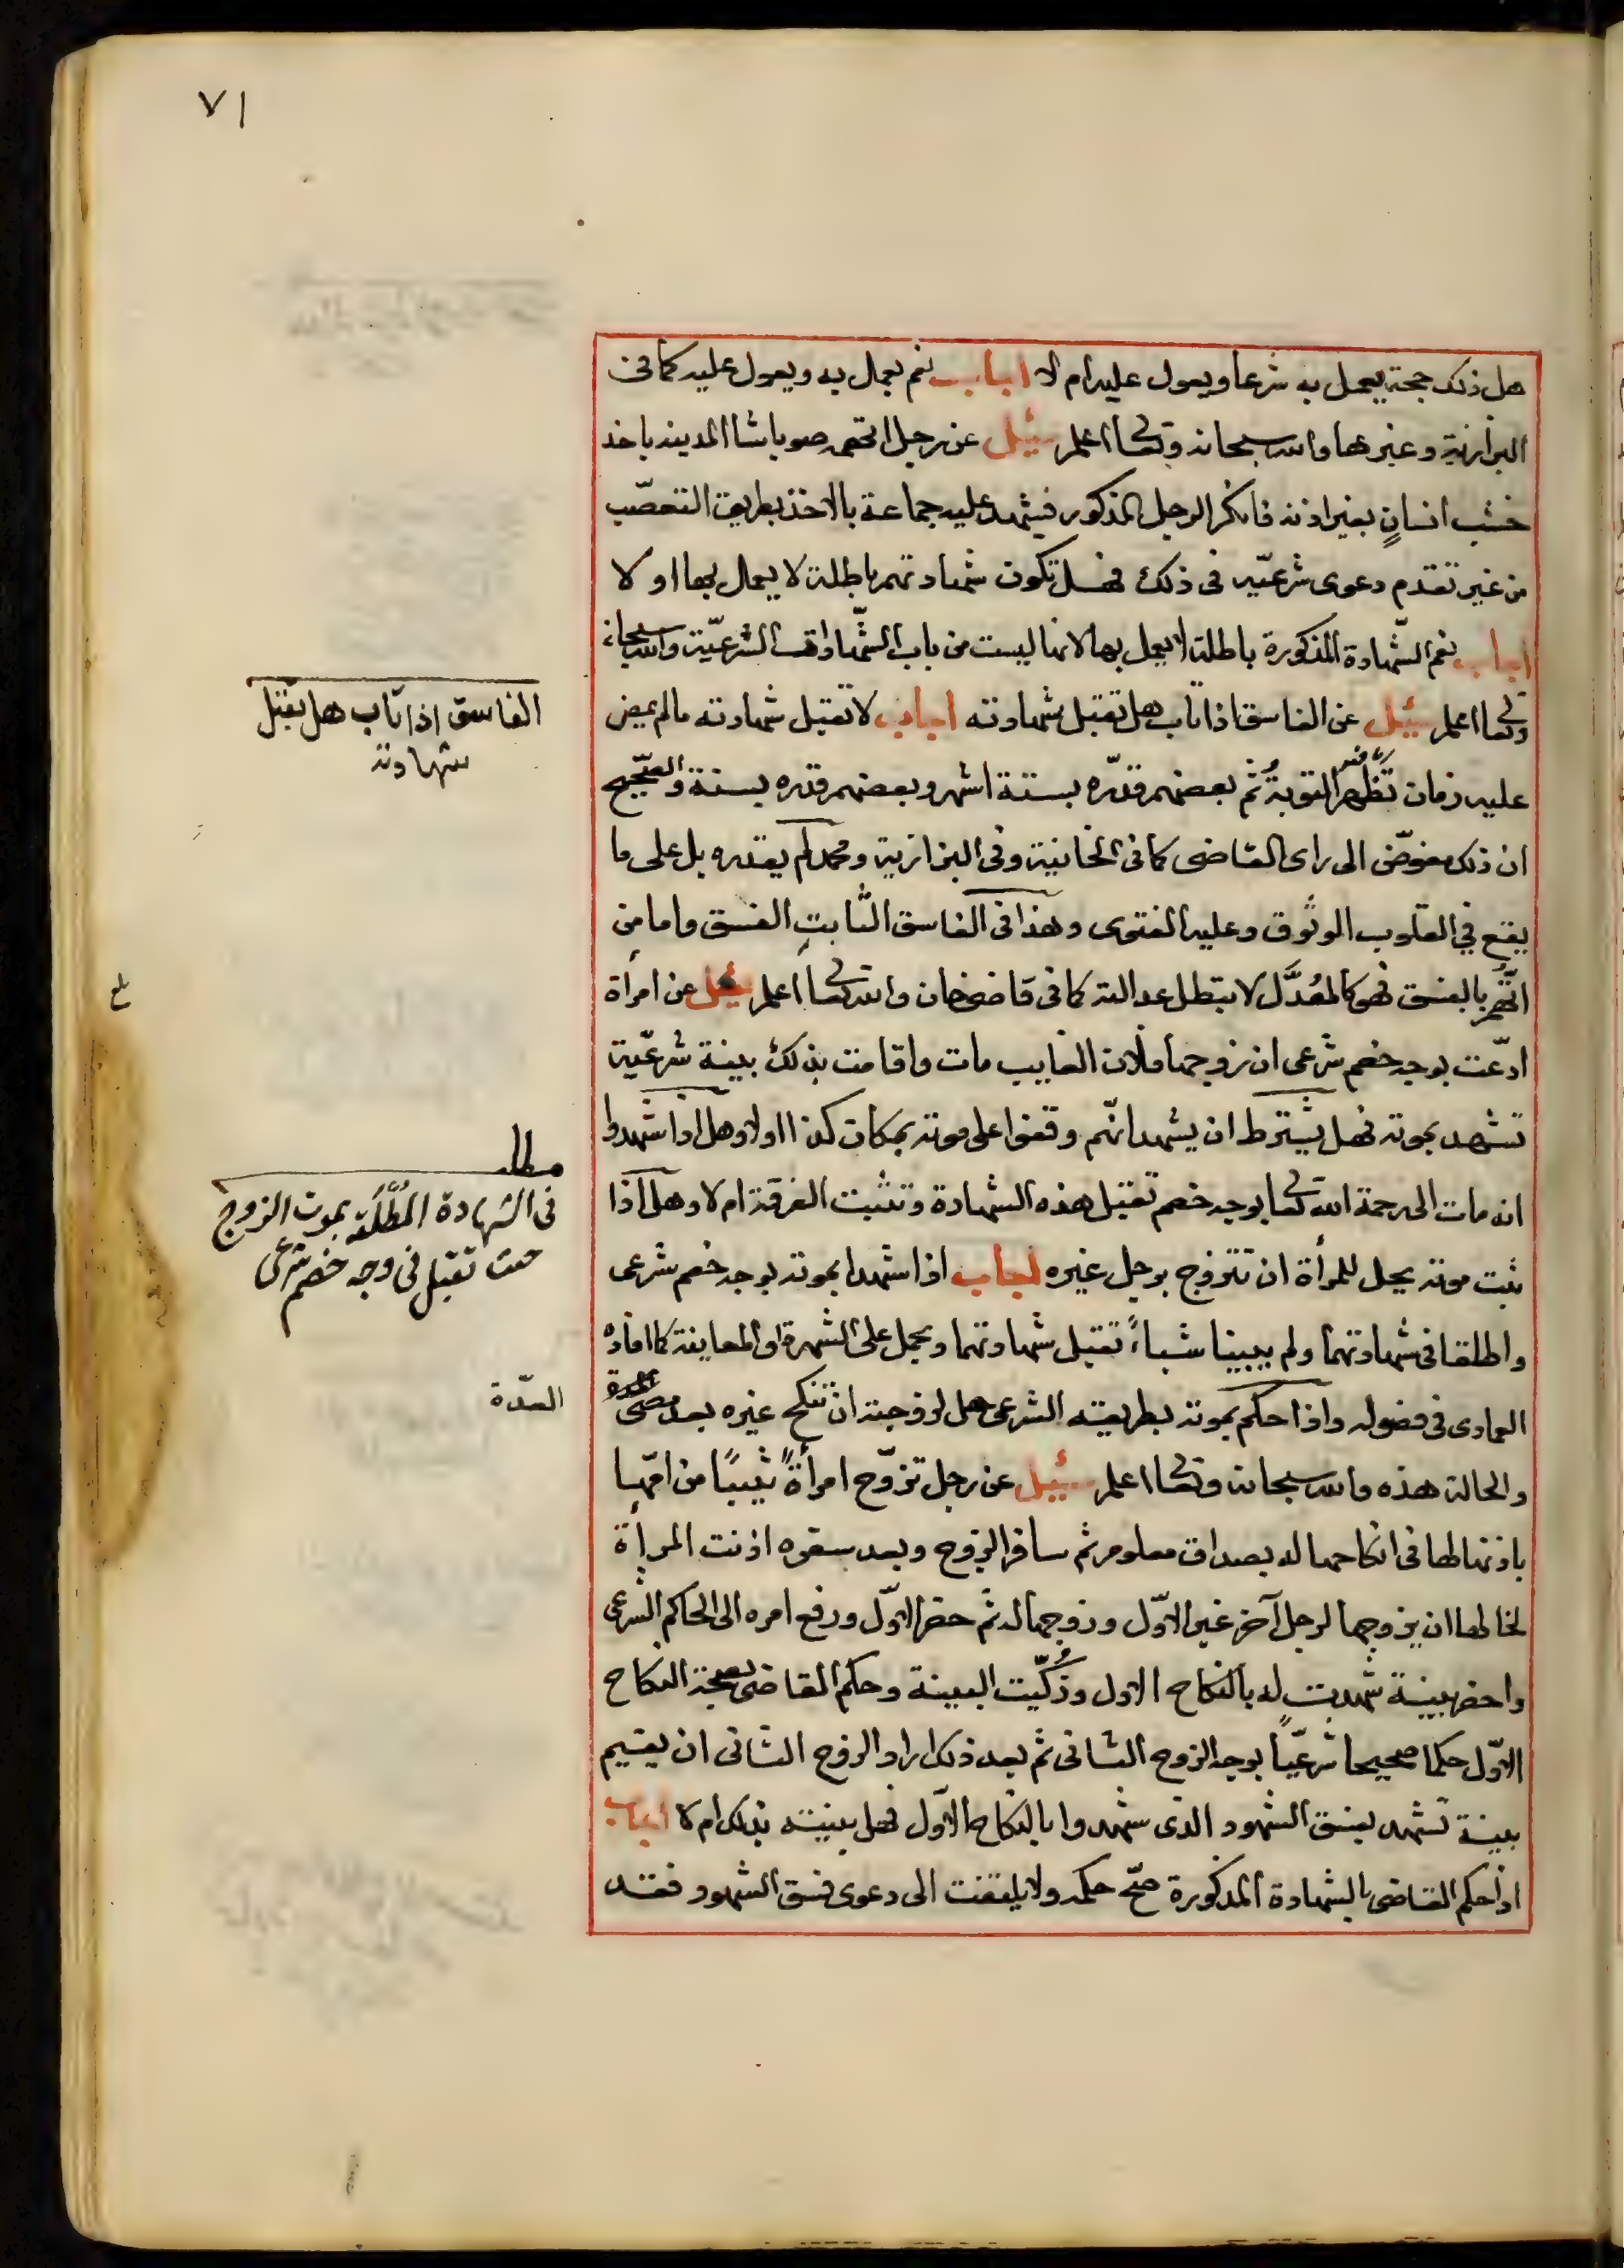 ٧١
هل ذلك حجة يعمل به شرعا ويعول عليه ام لا اجاب نعم يعمل به ويعول عليه كما فى
البزازية وغيرها والله سبحانه وتعالى اعلم سئيل عن رجل اتهمه صوباشا المدينة باخذ
خشب انسانٍ بغير اذنه فانكر الرجل المذكور فيشهد عليه جماعة بالاخذ بطريق التعصّب
من غير تقدم دعوى شرعيّه فى ذلك فهل تكون شهادتهم باطلة لا يعمل بها او لا
اجاب نعم الشّهادة المذكورة باطلة لا يعمل بها لانها ليست من باب الشّهادات الشرعيّة والله سبحانه
وتعالى اعلم سئيل عن الفاسق اذا تاب هل تقبل شهادته اجاب لا تقبل شهادته ما لم يمض
عليه زمان تظهر فيه التوبة ثم بعضهم قدّره بستة اشهر وبعضهم قدره بسنة والصّحيح
ان ذلك مفوّض الى راى القاضى كما فى الخانية وفى البزازية ومحمد لم يقدره بل على ما
يقع في القلوب الوثوق وعليه الفتوى وهذا فى الفاسق الثابت الفسق واما من
اتُّهم بالفسق فهو كالمعُدَّل لا تبطل عدالته كما فى قاضيخان والله تعالى اعلم سئل عن امرأة
ادّعت بوجه خصم شرعى ان زوجها فلان الغايب مات واقامت بذلك بينة شرعيّة
تشهد بموته فهل يشترط ان يشهد انّهم وقفوا على موته بمكان كذا اولا وهل اذا شهدوا
انه مات الى رحمة الله تعالى بوجه خصم تقبل هذه الشهادة وتثبت الفرقة ام لا وهل اذا
ثبت موته يحل للمرأة ان تتزوج برجل غيره اجاب اذا شهدا بموته بوجه خصم شرعى
واطلقا فى شهادتهما ولم يبينا شيأً تقبل شهادتهما ويحمل على الشهرة او المعاينة كما افاده
العمادى فى فصوله واذا حكم بموته بطريقته الشرعى حل لزوجته ان تنكح غيره بعد مضى العدة
والحالة هذه والله سبحانه وتعالى اعلم سئيل عن رجل تزوّج امرأةً ثيبًا من امّها
باذنها لها فى انكاحها له بصداق معلوم ثم سافر الزوج وبعد سفره اذنت المرأة
لخالها ان يزوجها لرجل آخر غير الاوّل وزوجها له ثم حضر الاوّل ورفع امره الى الحاكم الشرعى
واحضر بينة شهدت له بالنكاح الاول وزُكّيت البينة وحكم القاضى بصحة النكاح
الاوّل حكما صحيحا شرعيّاً بوجه الزوج الثانى ثم بعد ذلك اراد الزوج الثانى ان يقيم
بينة تشهد بفسق الشهود الذى شهدوا بالنكاح الاوّل فهل بينته بذلك ام لا اجاب
اذا حكم القاضى بالشهادة المذكورة صحّ حكمه ولا يلتفت الى دعوى فسق الشهود فقد
الفاسق اذا تاب هل تقبل
شهادته
مطلب
فى الشهادة المُطْلَقه بموت الزوج
حيث تقبل فى وجه خصم شرعى
العدّة
بلغ